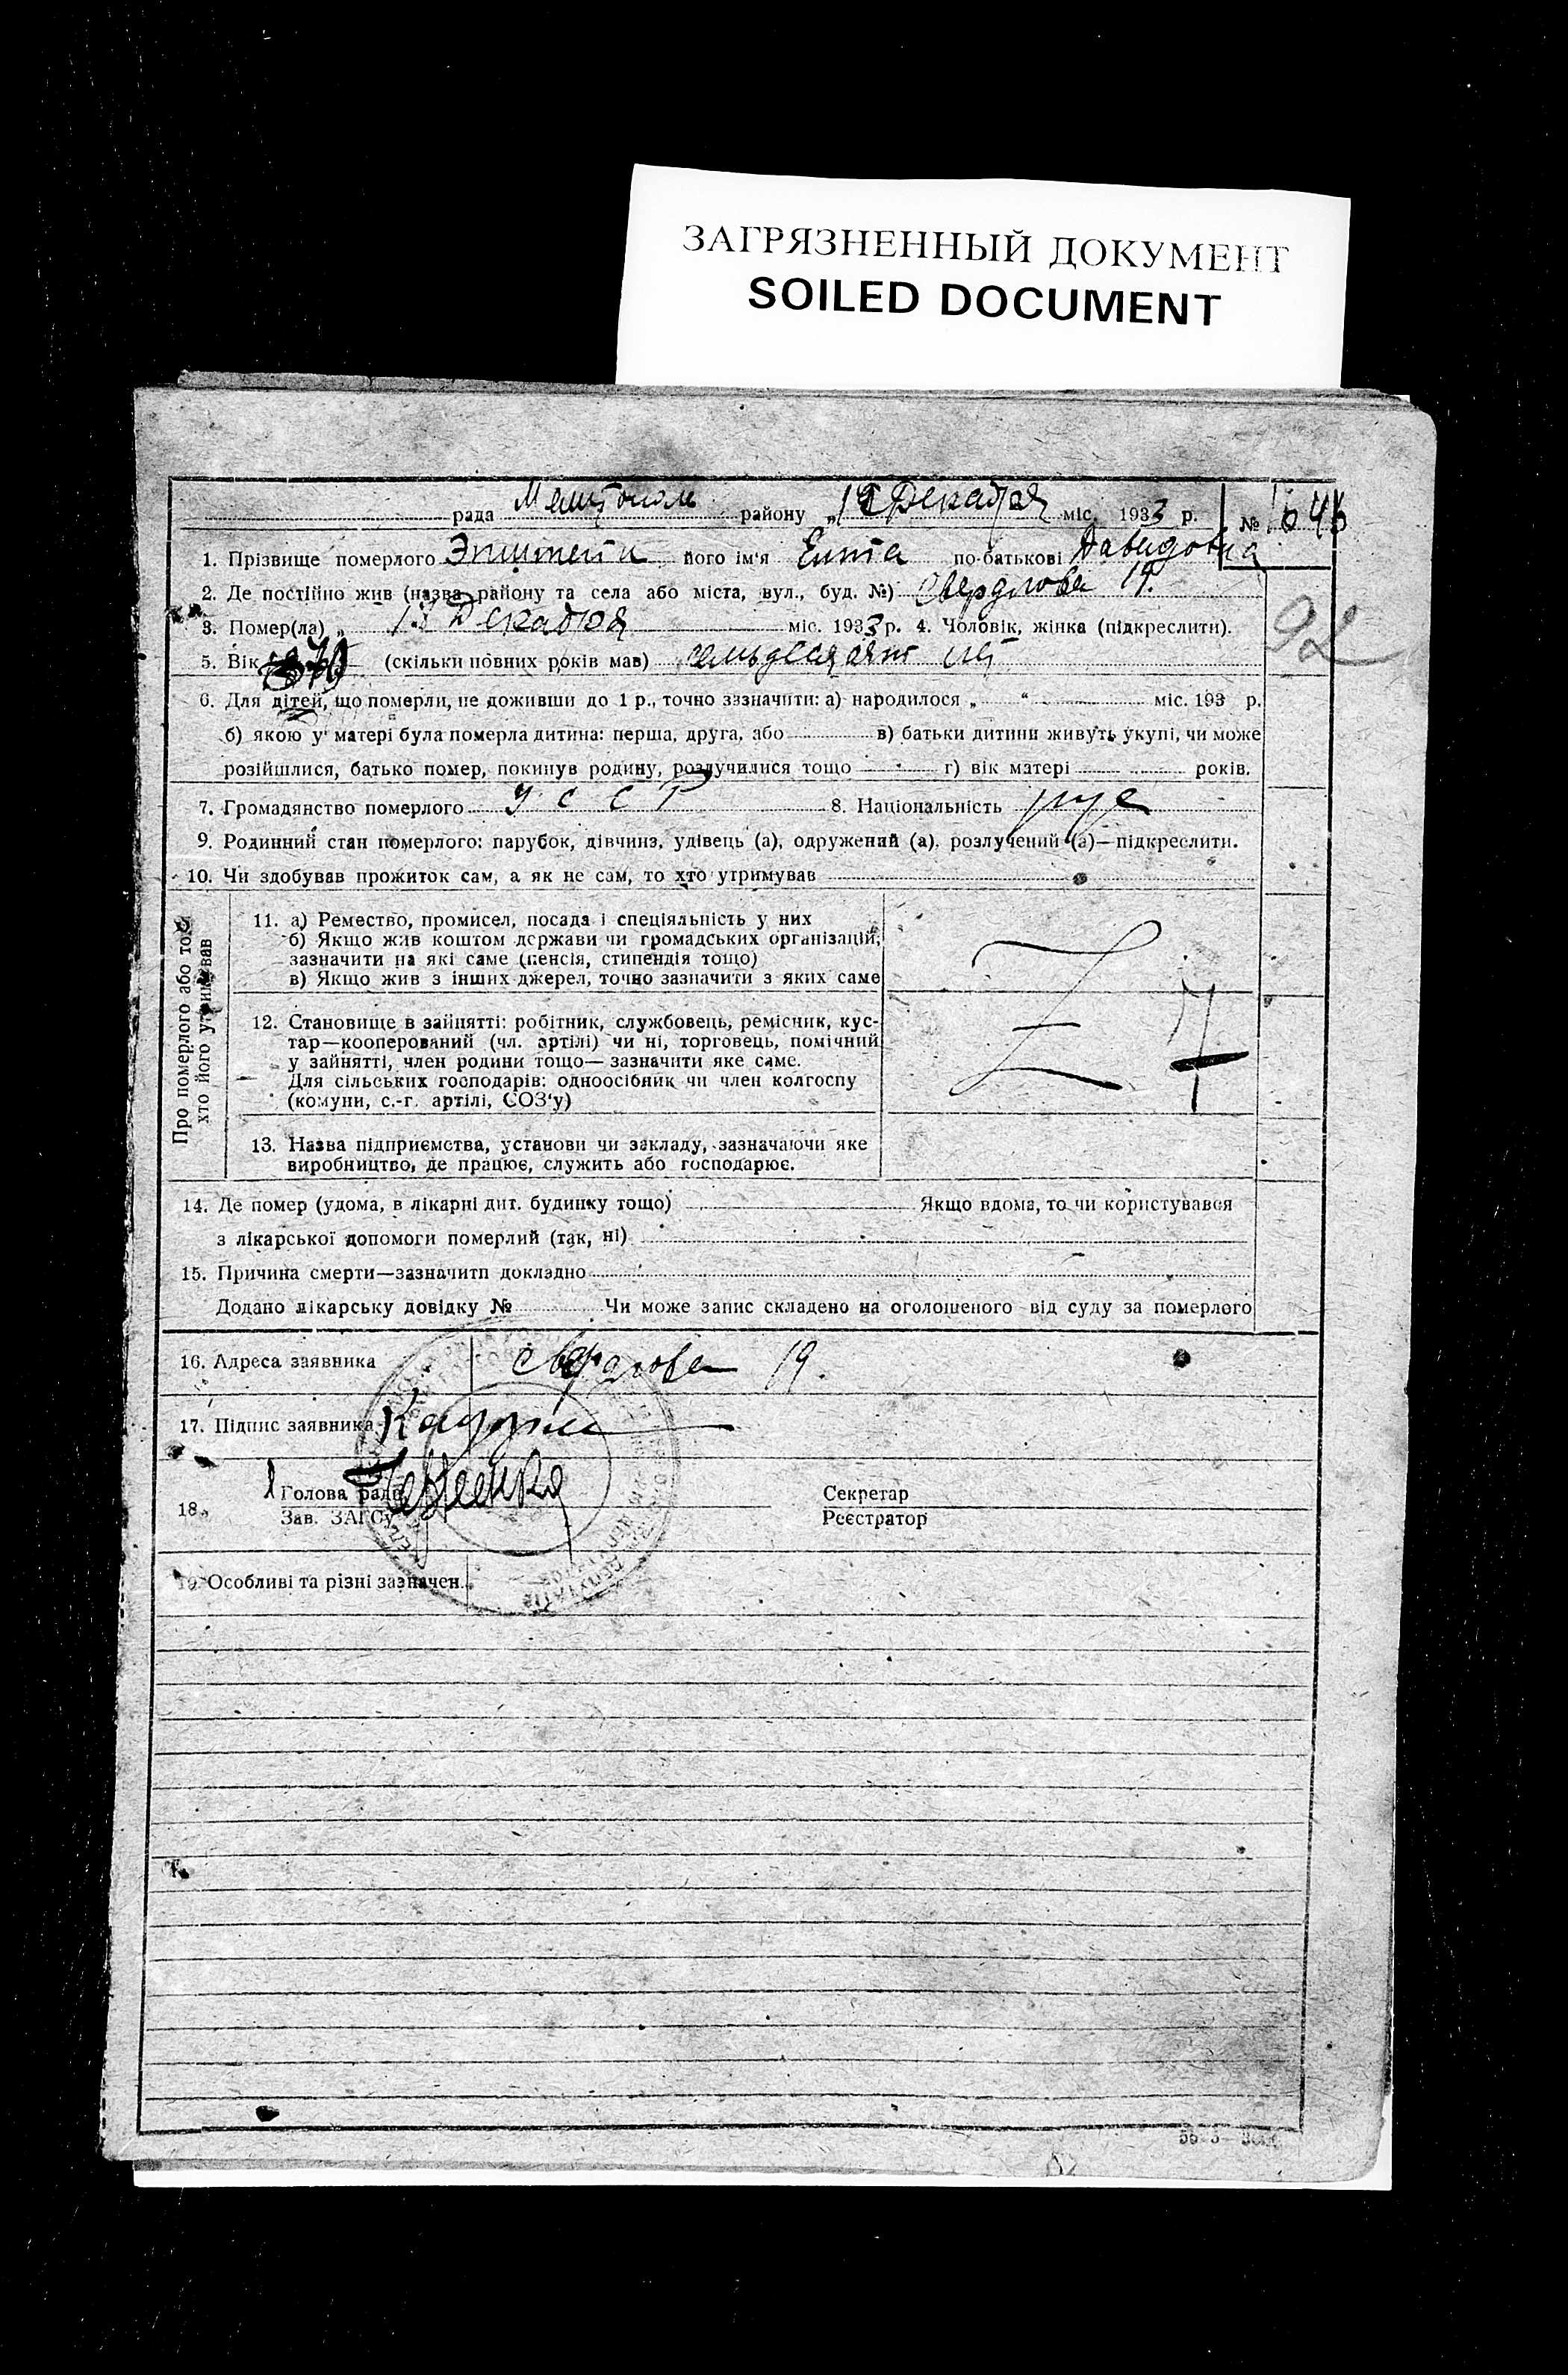 ЗАГРЯЗНЕННЫЙ ДОКУМЕНТ
SOILED DOCUMENT
рада Мелитополь району „19 Декабря міс. 1933 р. №
1. Прізвище померлого Эпштейн його ім'я Ента по-батькові Давидовна
2. Де постійно жив (назва району та села або міста, вул., буд. №) Свердлова 19.
3. Помер(ла) „ 18 Декабря міс. 1933 р. 4. Чоловік, жінка (підкреслити).
5. Вік 70 (скільки повних років мав) семьдесят лет
92
6. Для дітей, що померли, не доживши до 1 р., точно зазначити: а) народилося „ “ міс. 193 р.
б) якою у матері була померла дитина: перша, друга, або в) батьки дитини живуть укупі, чи може
розійшлися, батько помер, покинув родину, розлучилися тощо г) вік матері років.
7. Громадянство померлого УССР 8. Національність рус
9. Родинний стан померлого: парубок, дівчина, удівець (а), одружений (а), розлучений (а)—підкреслити.
10. Чи здобував прожиток сам, а як не сам, то хто утримував
Про померлого або того,
хто його утримував
11. а) Ремество, промисел, посада і спеціяльність у них
б) Якщо жив коштом держави чи громадських організацій,
зазначити на які саме (пенсія, стипендія тощо)
в) Якщо жив з інших джерел, точно зазначити з яких саме
12. Становище в зайнятті: робітник, службовець, ремісник, кус-
тар—кооперований (чл. артілі) чи ні, торговець, помічний
у зайнятті, член родини тощо—зазначити яке саме.
Для сільських господарів: одноосібник чи член колгоспу
(комуни, с.-г. артілі, СОЗ'у)
13. Назва підприємства, установи чи закладу, зазначаючи яке
виробництво, де працює, служить або господарює.
14. Де помер (удома, в лікарні дит. будинку тощо) Якщо вдома, то чи користувався
з лікарської допомоги померлий (так, ні)
15. Причина смерти—зазначити докладно
Додано лікарську довідку № Чи може запис складено на оголошеного від суду за померлого
16. Адреса заявника Свердлова 19.
17. Підпис заявника
18. Голова ради Секретар
Зав. ЗАГСу Реєстратор
19. Особливі та різні зазначен.